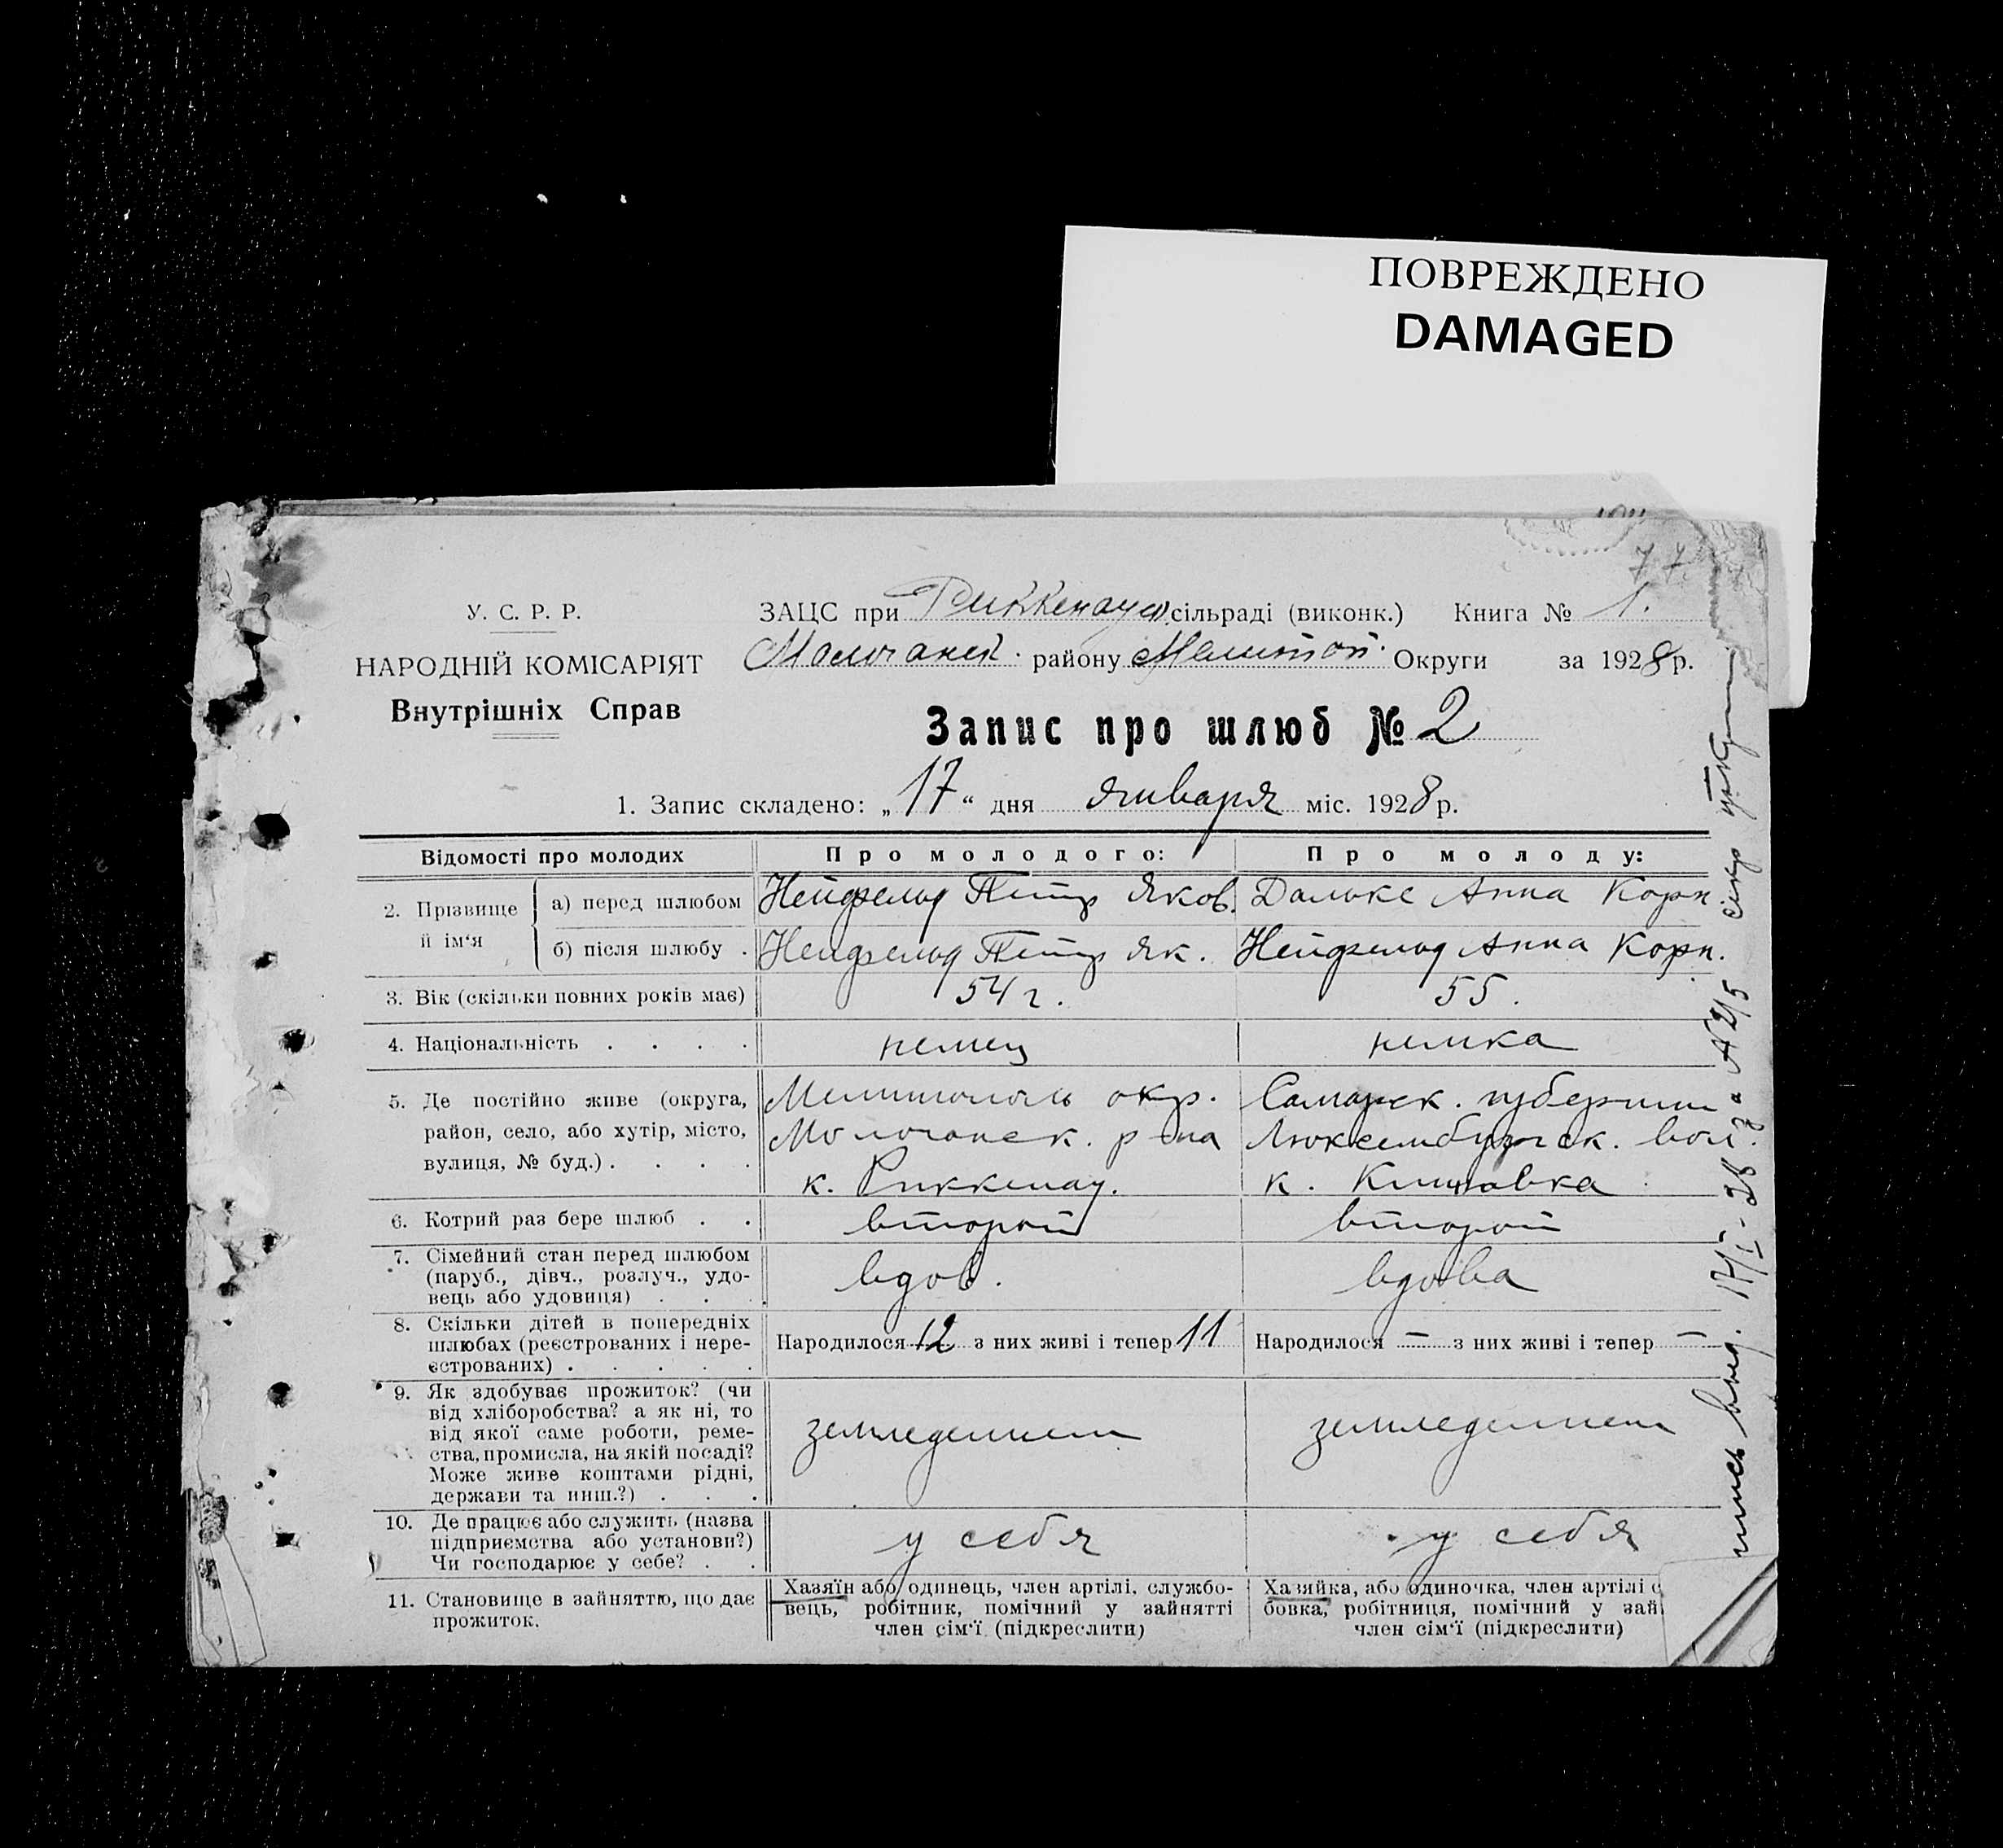 ПОВРЕЖДЕНО
DAMAGED
77
У. С. Р. Р.
НАРОДНІЙ КОМІСАРІЯТ
Внутрішніх Справ
ЗАЦС при Риккенауск. сільраді (виконк.) Книга № 1.
Молочанск. району Мелитоп. Округи за 1928 р.
Запис про шлюб № 2
1. Запис складено: „17“ дня января міс. 1928 р.
Відомості про молодих
Про молодого:
Про молоду:
2. Прізвище й ім'я
а) перед шлюбом
Нейфельд Петр Яков.
Дальке Анна Корн.
б) після шлюбу .
Нейфельд Петр Як.
Нейфельд Анна Корн.
3. Вік (скільки повних років має)
54 г.
55.
4. Національність . . . .
немец
немка
5. Де постійно живе (округа,
район, село, або хутір, місто,
вулиця, № буд.) . . . .
Мелитополь окр.
Молочанск. р-на
к. Риккенау.
Самарск. губернии
Люксембургск. вол.
к.
6. Котрий раз бере шлюб . .
второй
второй
7. Сімейний стан перед шлюбом
(паруб., дівч., розлуч., удо-
вець або удовиця) . . .
вдов.
вдова
8. Скільки дітей в попередніх
шлюбах (реєстрованих і нере-
єстрованих) . . . . .
Народилося 12 з них живі і тепер 11
Народилося — з них живі і тепер —
9. Як здобуває прожиток? (чи
від хліборобства? а як ні, то
від якої саме роботи, реме-
ства, промисла, на якій посаді?
Може живе коштами рідні,
держави та инш.?) . . .
земледелием
земледелием
10. Де працює або служить (назва
підприємства або установи?)
Чи господарює у себе? . .
у себя
у себя
11. Становище в зайняттю, що дає
прожиток.
Хазяїн або одинець, член артілі, службо-
вець, робітник, помічний у зайнятті
член сім'ї (підкреслити)
Хазяйка, або одиночка, член артілі с
бовка, робітниця, помічний у зай
член сім'ї (підкреслити)
выд. 17/I-28 за № 2/5 секр